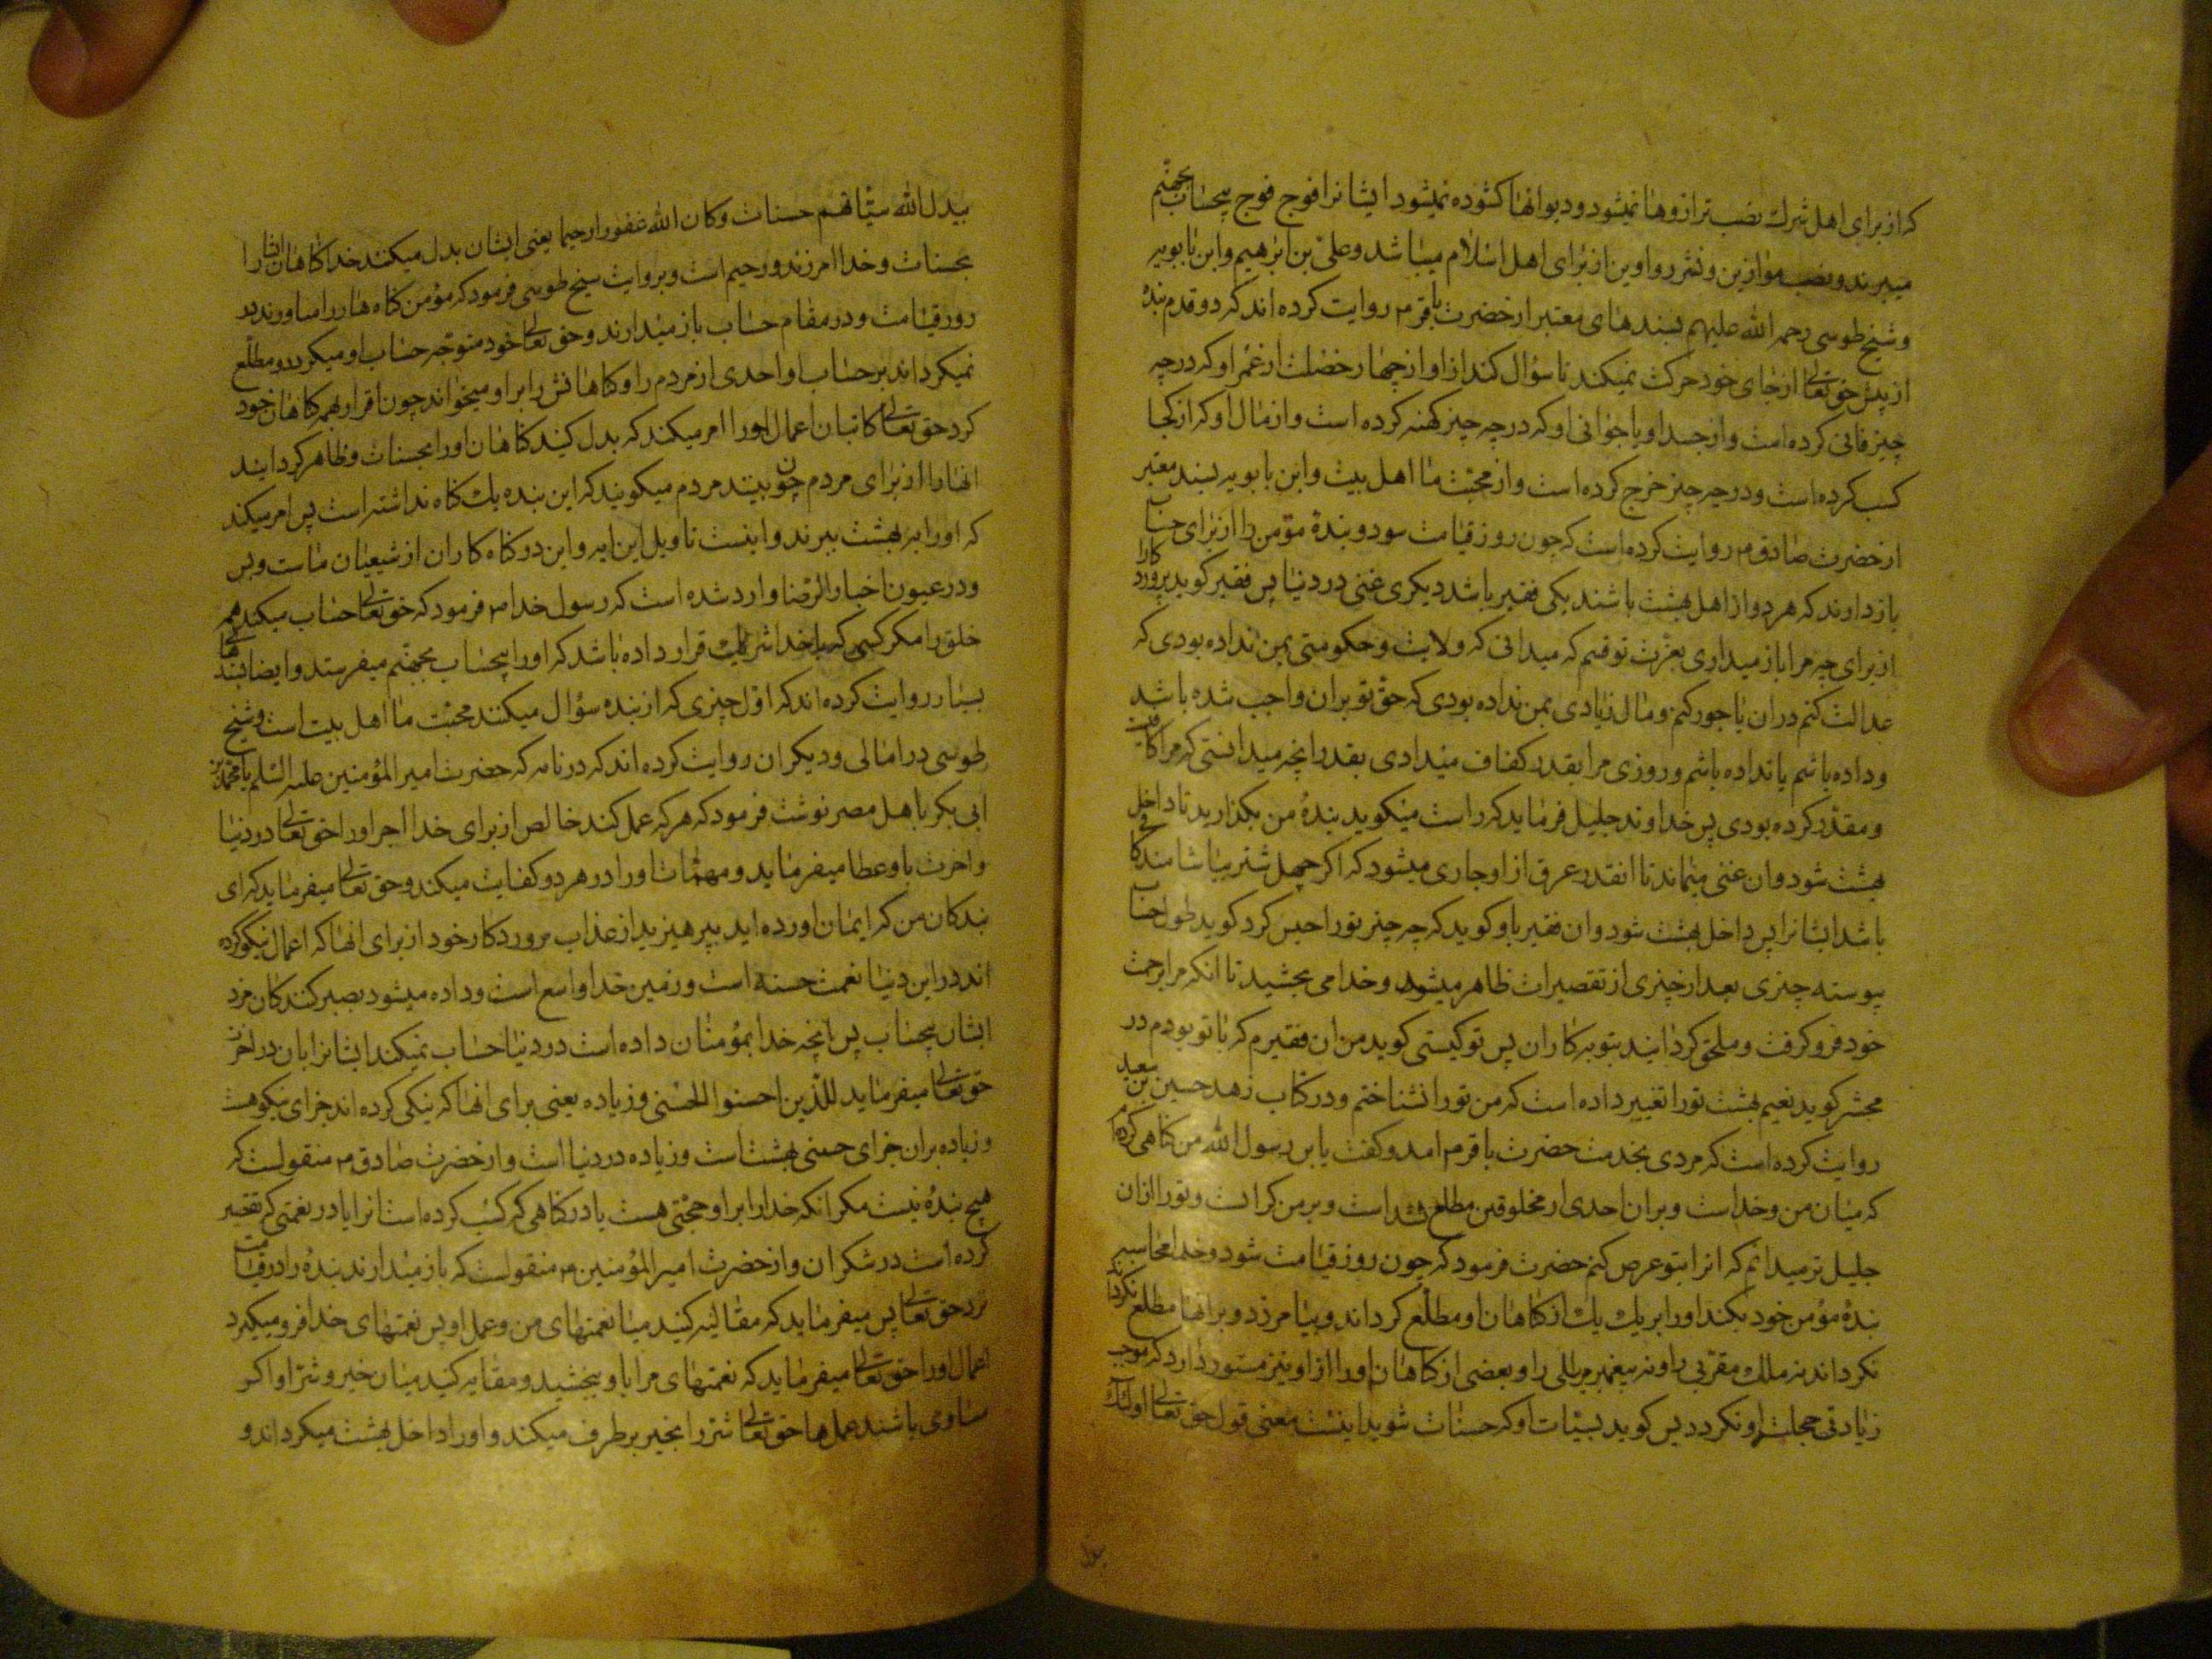 که از برای اهل شرك نصب ترازوها نمیشود و دیوانها کشوده نمیشود ایشانرا فوج فوج بیحساب بجهنم
میبرند و نصب موازین و نشر دواوین از برای اهل اسلام میباشد و علی بن ابرهیم و ابن بابویه
و شیخ طوسی رحمه الله علیهم بسندهای معتبر از حضرت باقر م روایت کرده اند که دو قدم بنده
از پیش حق تعالی از جای خود حرکت نمیکند تا سؤال کند از او از چهار خصلت از عمر او که در چه
چیز فانی کرده است و از جسد او یا جوانی او که در چه چیز کهنه کرده است و از مال او که از کجا
کسب کرده است و در چه چیز خرج کرده است و از محبت ما اهل بیت و ابن بابویه بسند معتبر
از حضرت صادق م روایت کرده است که چون روز قیامت شود دو بندۀ مؤمن را از برای حساب
بازدارند که هر دو از اهل بهشت باشند یکی فقیر باشد دیکری غنی در دنیا پس فقیر کوید پروردکارا
از برای چه مرا باز میداری بعزت تو قسم که میدانی که ولایت و حکومتی بمن نداده بودی که
عدالت کنم در ان یا جور کنم و مال زیادی بمن نداده بودی که حق تو بران واجب شده باشد
و داده باشم یا نداده باشم و روزی مرا بقدر کفاف میدادی بقدر انچه میدانستی که مرا کافیست
و مقدر کرده بودی پس خداوند جلیل فرماید که راست میکوید بندۀ من بکذارید تا داخل
بهشت شود وان غنی میماند تا انقدر عرق از او جاری میشود که اکر چهل شتر بیاشامند کافی
باشد ایشانرا پس داخل بهشت شود وان فقیر باو کوید که چه چیز تو را حبس کرد کوید طول حساب
پیوسته چیزی بعد از چیزی از تقصیرات ظاهر میشود و خدا می بخشید تا انکه مرا برحمت
خود فرو کرفت و ملحق کردانید بتوبه کاران پس تو کیستی کوید من ان فقیرم که با تو بودم در
محشر کوید نعیم بهشت تو را تغییر داده است که من تو را نشناختم و در کتاب زهد حسین بن سعید
روایت کرده است که مردی بخدمت حضرت باقر م امد و کفت یا بن رسول الله من کناهی کرده ام
که میان من و خداست و بران احدی از مخلوقین مطلع نشده است و بر من کرانست و تو را ازان
جلیل تر میدانم که انرا بتو عرض کنم حضرت فرمود که چون روز قیامت شود و خدا محاسبه
بندۀ مؤمن خود بکند او را بر یك یك از کناهان او مطلع کرداند و بیامرزد و بر انها مطلع نکرداند
نکرداند نه ملك مقربی را و نه پیغمبر مرسلی را و بعضی از کناهان او را از او نیز مستور دارد که موجب
زیادتی خجلت او نکردد پس کوید بسیئات او که حسنات شوید اینست معنی قول حق تعالی اولئك
یبدل الله سیئاتهم حسنات وکان الله غفورا رحیما یعنی ایشان بدل میکند خدا کناهان ایشانرا
بحسنات و خدا امرزنده و رحیم است و بروایت شیخ طوسی فرمود که مؤمن کناه کار را میاورند در
روز قیامت و در مقام حساب باز میدارند و حق تعالی خود متوجه حساب او میکردد و مطلع
نمیکرداند بر حساب او احدی از مردم را و کناهانش را بر او میخواند چون اقرار بهمه کناهان خود
کرد حق تعالی کاتبان اعمال او را امر میکند که بدل کنید کناهان او را بحسنات و ظاهر کردانید
انها را از برای مردم چون بینند مردم میکویند که این بنده یك کناه نداشته است پس امر میکند
که او را به بهشت ببرند و اینست تاویل این ایه و این در کناه کاران از شیعیان ماست و بس
و در عیون اخبار الرضا وارد شده است که رسول خدا م فرمود که حق تعالی حساب میکند همه
خلق را مکر کسی که با خدا شریك قرار داده باشد که او را بیحساب بجهنم میفرستد و ایضا بسندهای
بسیار روایت کرده اند که اول چیزی که از بنده سؤال میکنند محبت ما اهل بیت است و شیخ
طوسی در امالی و دیکران روایت کرده اند که در نامه که حضرت امیر المؤمنین علیه السلم با محمد بن
ابی بکر باهل مصر نوشت فرمود که هر که عمل کند خالص از برای خدا اجر او را حق تعالی در دنیا
و اخرت باو عطا میفرماید و مهمات او را در هر دو کفایت میکند و حق تعالی میفرماید که ای
بندکان من که ایمان اورده اید بپرهیزید از عذاب پروردکار خود از برای انها که اعمال نیکو کرده
اند در این دنیا نعمت حسنه است و زمین خدا واسع است و داده میشود بصبر کنندکان مزد
ایشان بیحساب پس انچه خدا بمؤمنان داده است در دنیا حساب نمیکند ایشانرا بان در اخرت
حق تعالی میفرماید للذین احسنوا الحسنی و زیاده یعنی برای انها که نیکی کرده اند جزای نیکو هست
و زیاده بران جزای حسنی بهشت است و زیاده در دنیا است و از حضرت صادق م منقولست که
هیچ بندۀ نیست مکر انکه خدا را بر او حجتی هست یا در کناهی که کسب کرده است انرا یا در نعمتی که تقصیر
کرده است در شکر ان و از حضرت امیر المؤمنین م منقولست که باز میدارند بندۀ را در قیامت
نزد حق تعالی پس میفرماید که مقایسه کنید میان نعمتهای من و عمل او پس نعمتهای خدا فرو میکیرد
اعمال او را حق تعالی میفرماید که نعمتهای مرا باو ببخشید و مقایسه کنید میان خیر و شر او اکر
مساوی باشند عملها حق تعالی شر را بخیر برطرف میکند و او را داخل بهشت میکرداند و